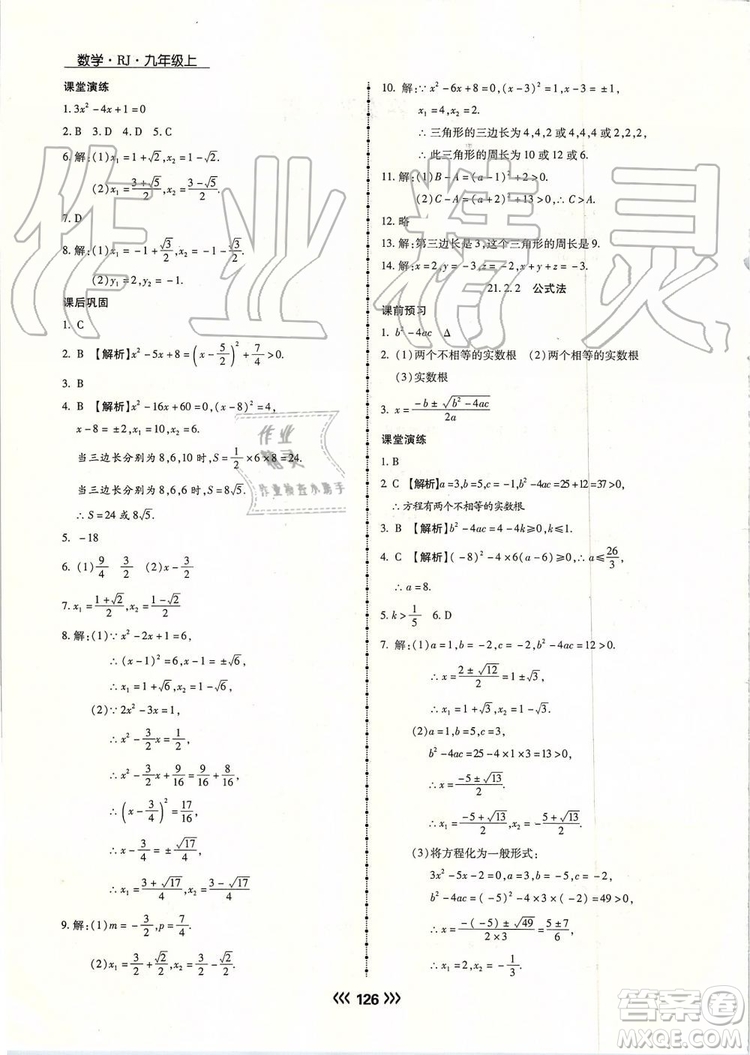 数学·RJ·九年级上
课堂演练
1. 3x²-4x+1=0
2. B 3. D 4. D 5. C
6. 解:(1)x₁=1+√2,x₂=1-√2.
(2)x₁=(3+√5)/2,x₂=(3-√5)/2.
7. D
8. 解:(1)x₁=-1+√3/2,x₂=-1-√3/2.
(2)y₁=2,y₂=-1.
课后巩固
1. C
2. B 【解析】x²-5x+8=(x-5/2)²+7/4>0.
3. B
4. B 【解析】x²-16x+60=0,(x-8)²=4,
x-8=±2,x₁=10,x₂=6.
当三边长分别为8,6,10时,S=1/2×6×8=24.
当三边长分别为8,6,6时,S=8√5.
∴S=24或8√5.
5. -18
6. (1)9/4 3/2 (2)x-3/2
7. x₁=(1+√2)/2,x₂=(1-√2)/2
8. 解:(1)∵x²-2x+1=6,
∴(x-1)²=6,x-1=±√6,
∴x₁=1+√6,x₂=1-√6.
(2)∵2x²-3x=1,
∴x²-3/2x=1/2,
∴x²-3/2x+9/16=1/2+9/16,
∴(x-3/4)²=17/16,
∴x-3/4=±√17/4,
∴x₁=(3+√17)/4,x₂=(3-√17)/4.
9. 解:(1)m=-3/2,p=7/4.
(2)x₁=-3/2,x₂=9/2.
10. 解:∵x²-6x+8=0,(x-4)(x-2)=0,
x₁=4,x₂=2,
∴三角形的三边长为4,4,2或2,2,2,
∴此三角形的周长为10或12或6.
11. 解:(1)B-A=(a-1)²+2>0.
(2)C-A=(a+2)²+13>0,C>A.
12. 略
13. 解:第三边长是3,这个三角形的周长是9.
14. 解:x=1,y=-2,z=-2,x+y+z=-3.
21.2.2 公式法
课前预习
1. b²-4ac Δ
2. (1)两个不相等的实数根 (2)两个相等的实数根
(3)实数根
3. x=(-b±√(b²-4ac))/2a
课堂演练
1. B
2. C 【解析】a=3,b=5,c=-1,b²-4ac=25+12=37>0,
∴方程有两个不相等的实数根.
3. B 【解析】b²-4ac=4-4k>0,∴k<1.
4. C 【解析】(-8)²-4×6(a-6)≥0,∴a≤26/3,
∴a=8.
5. k>1/5 6. D
7. 解:(1)a=1,b=-2,c=-2,b²-4ac=12>0,
∴x=(2±√12)/2=1±√3,
∴x₁=1+√3,x₂=1-√3.
(2)a=1,b=5,c=3,
b²-4ac=25-4×1×3=13>0,
∴x=(-5±√13)/2,
∴x₁=(-5+√13)/2,x₂=(-5-√13)/2.
(3)将方程化为一般形式:
3x²-5x-2=0,a=3,b=-5,c=-2.
b²-4ac=(-5)²-4×3×(-2)=49>0,
∴x=(-(-5)±√49)/(2×3)=(5±7)/6,
∴x₁=2,x₂=-1/3.
126
作业精灵
作业
精灵
作业检查小帮手
答案圈
MXQE.COM